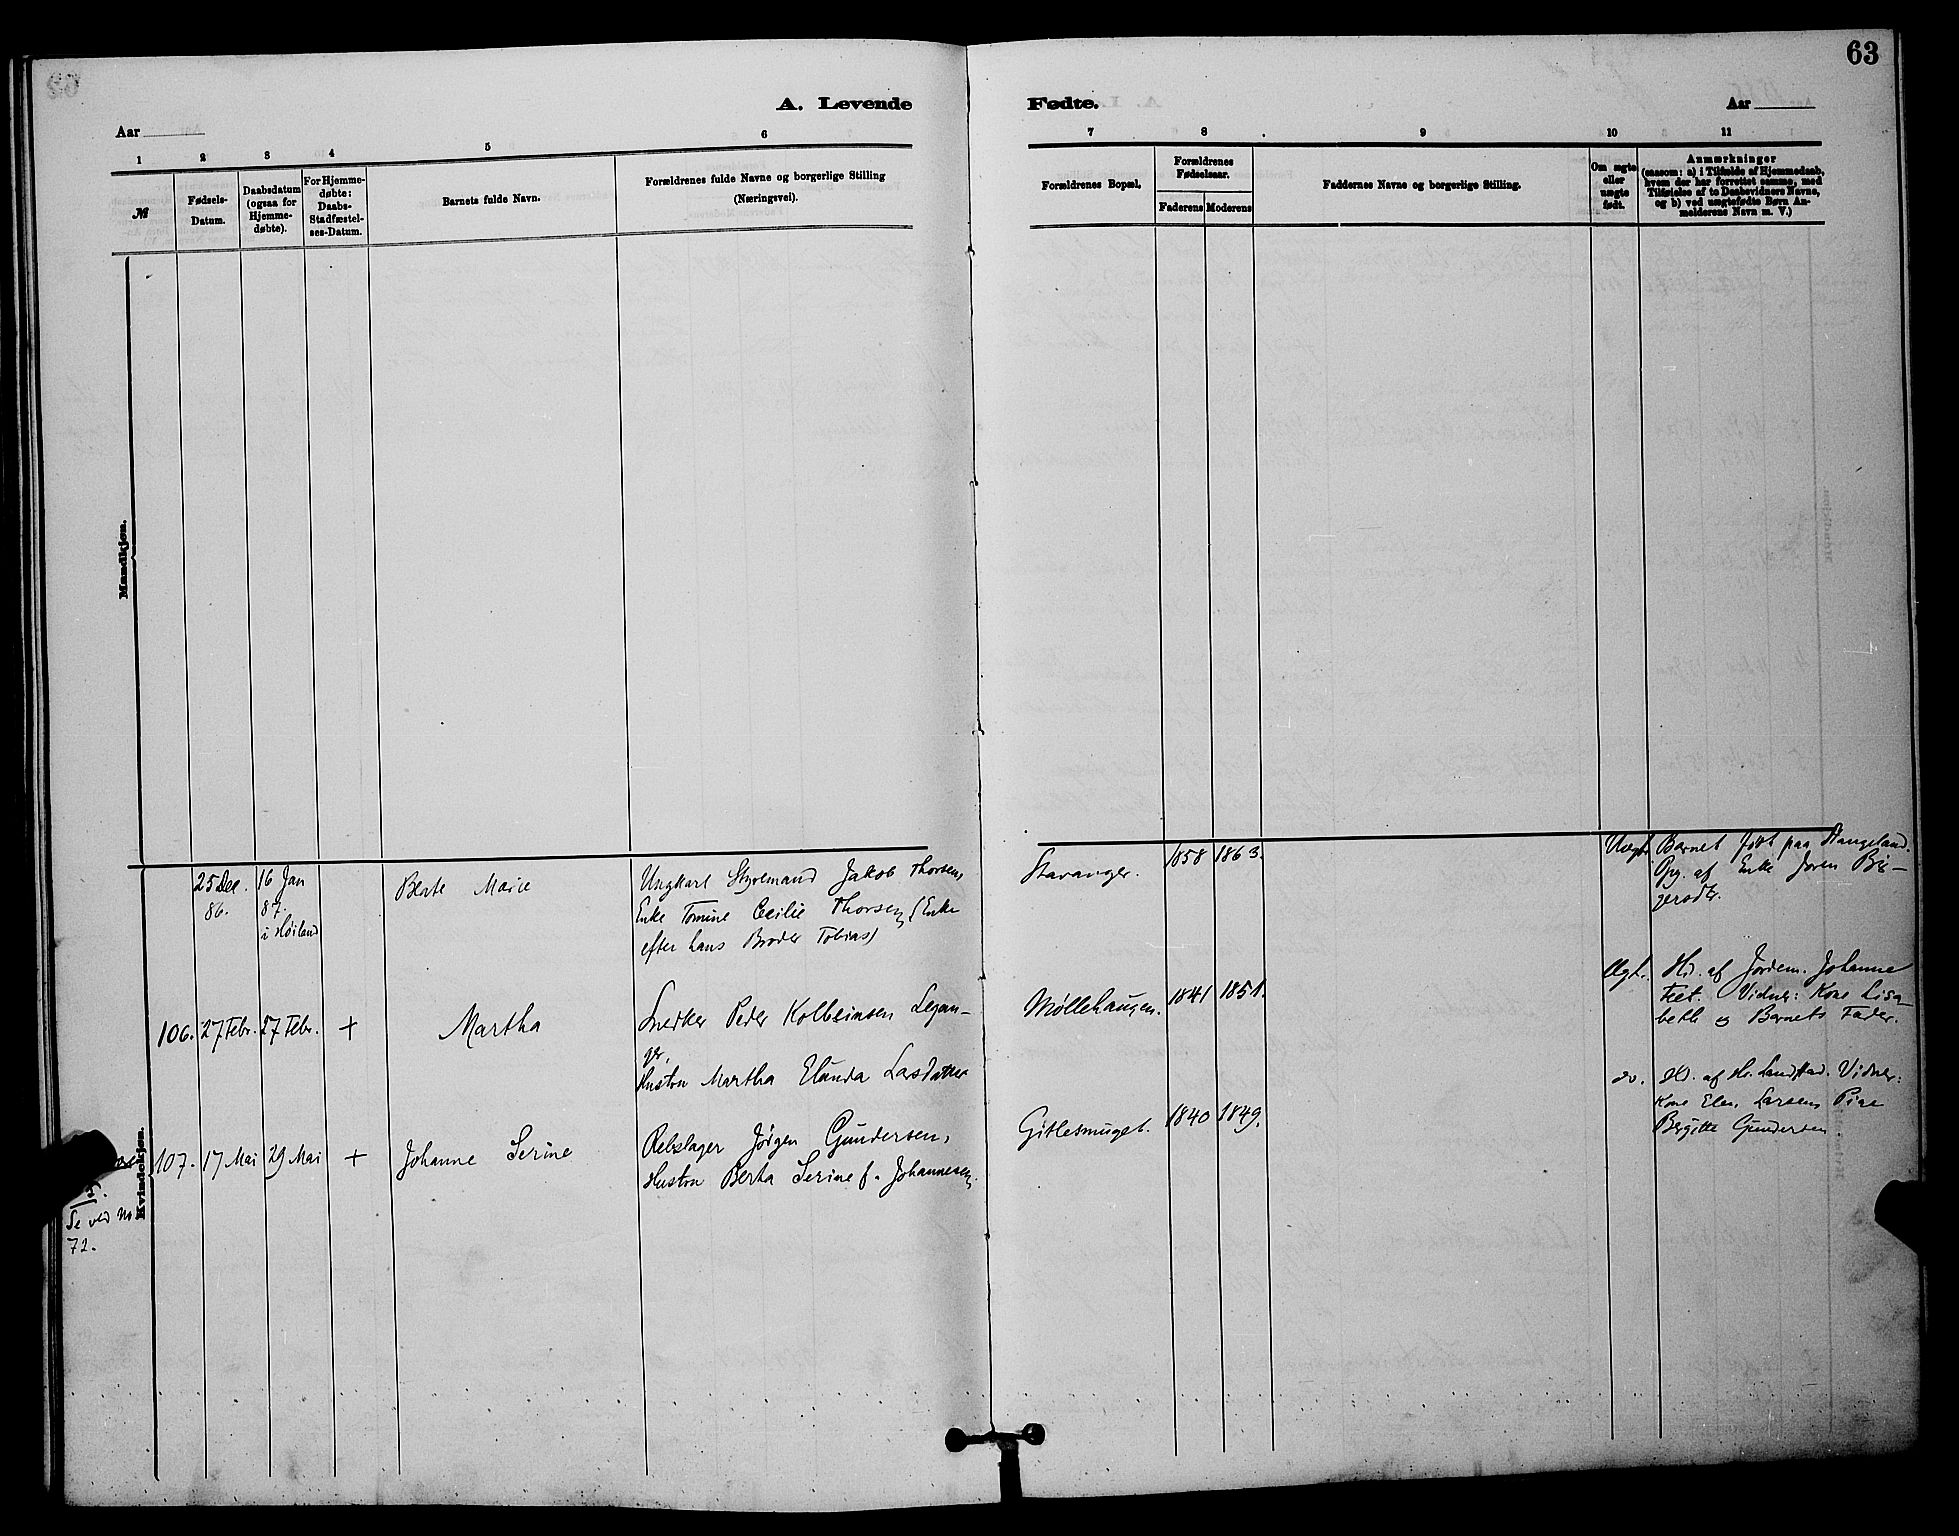 63
A. Levende Fødte.
Aar
Aar
1 2 3 4 5 6 7 8 9 10 11
№
Fødsels-
Datum.
Daabsdatum
(ogsaa for
Hjemme-
døbte).
For Hjemme-
døbte:
Daabs-
Stadfæstel-
ses-Datum.
Barnets fulde Navn.
Forældrenes fulde Navne og borgerlige Stilling
(Næringsvei).
Forældrenes Bopæl.
Forældrenes
Fødselsaar.
Faderens
Moderens
Faddernes Navne og borgerlige Stilling.
Om ægte
eller
uægte
født.
Anmærkninger
(saasom: a) i Tilfælde af Hjemmedaab,
hvem der har forrettet samme, med
Tilføielse af to Daabsvidners Navne,
og b) ved uægtefødte Børn An-
melderens Navn m. V.)
Mandkjøn.
Kvindekjøn.
25 Dec.
86.
16 Jan
87.
i Høiland
Berte Marie
Ungkarl Styremand Jakob Thorsen,
Enke Tomine Cecilie Thorsen (Enke
efter hans Broder Tobias)
Stavanger.
1858
1863.
Uægt.
Barnet født paa Stangeland.
Opg. af Enke Joren
106.
27 Febr.
27 Febr.
+
Martha
Snedker Peder Kolbeinsen Legan-
ger,
Hustru Martha Elunda Larsdatter
Møllehaugen.
1841
1851.
Ægt.
Hd. af Jordem. Johanne
Teet. Vidner: Kone Lisa-
beth og Barnets Fader.
107.
17 Mai
29 Mai
+
Johanne Serine
Rebslager Jørgen Gundersen,
Hustru Berta Serine f. Johannesen
Gitlesmuget.
1840
1849.
do.
Hd. af Hr. Landstad. Vidner:
Kone Elen Larsen Pige
Bergitte Gundersen.
Se ved No
72.